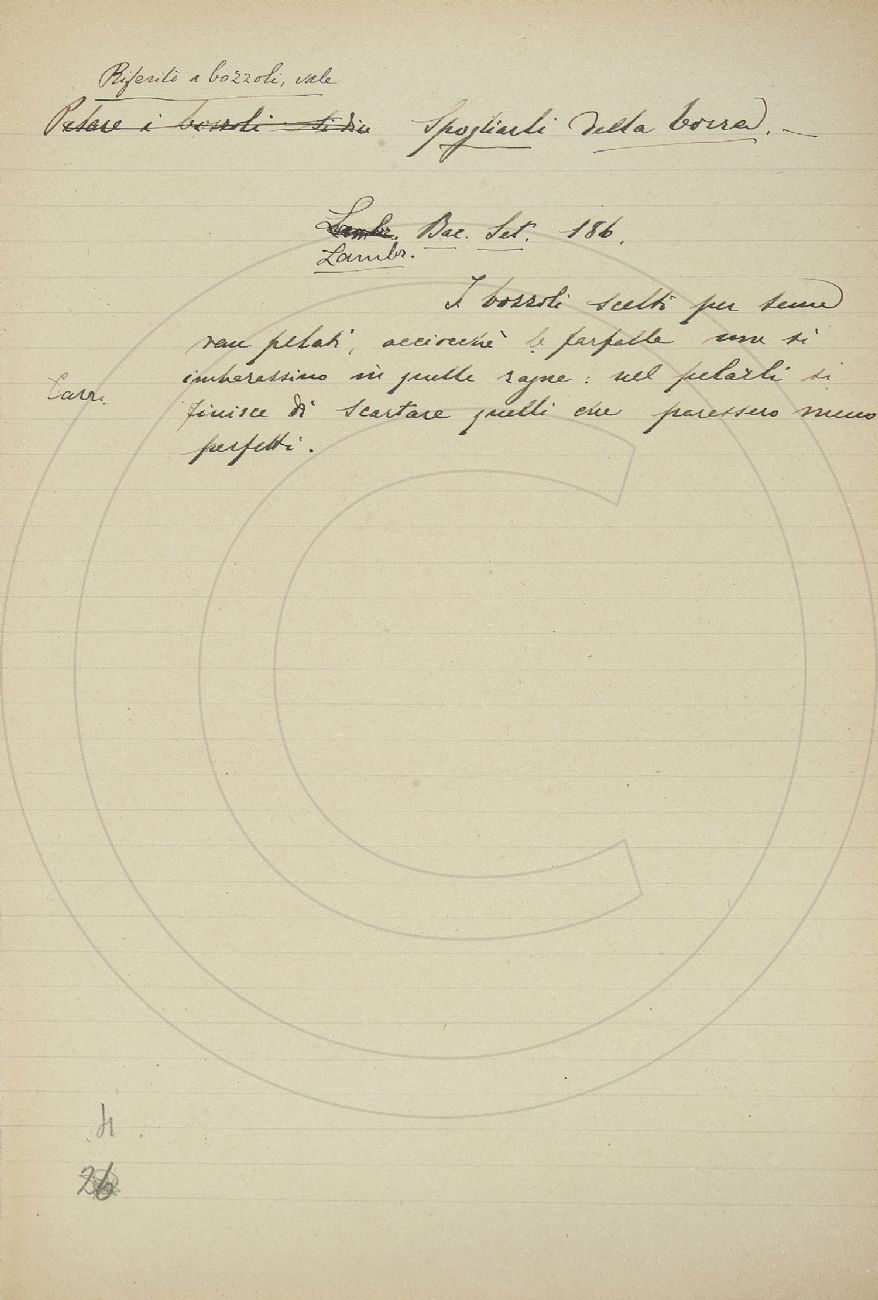 Riferito a bozzoli, vale
Pelare i bozzoli si dice Spogliarli della borra. —
Lambr. Bac. Set. 186.
Lambr.
I bozzoli scelti per seme
van pelati, acciocchè le farfalle non si
imbarassino in quelle ragne: nel pelarli si
finisce di scartare quelli che paressero meno
perfetti.
Carr.
26